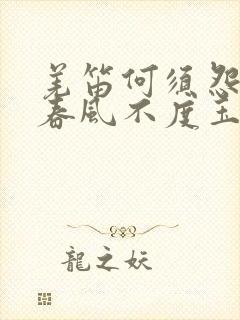 羌笛何須怨
春風不度玉
龍之妖